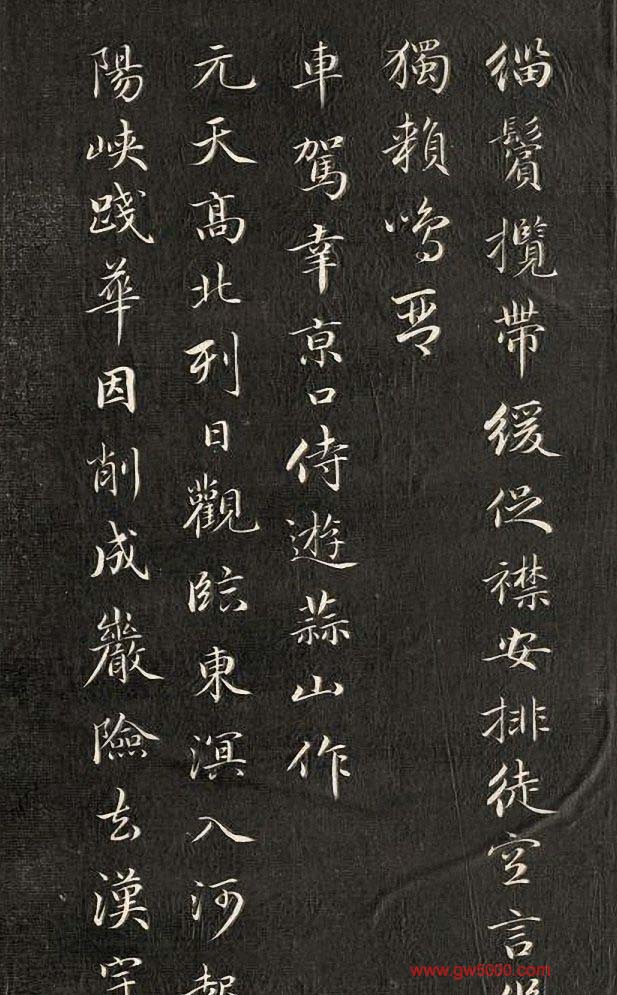 緇鬢攬帶緩促襟安排徒空言
獨賴鳴琴
車駕幸京口侍遊蒜山作
元天高北列日觀臨東溟入河起
陽峽踐華因削成巖險去漢宇
www.gw5000.com